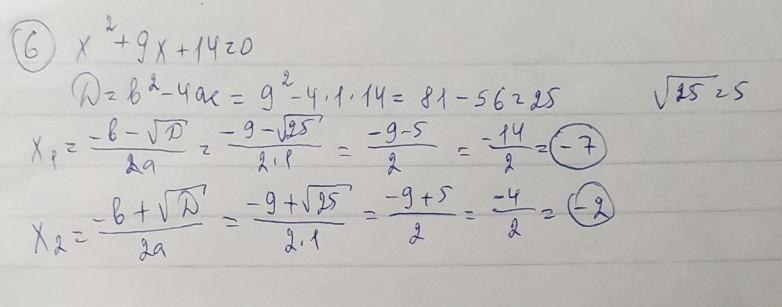 6 x² + 9x + 14 = 0
D = b² - 4ac = 9² - 4·1·14 = 81 - 56 = 25 √25 = 5
x₁ = (-b - √D)/2a = (-9 - √25)/2·1 = (-9-5)/2 = -14/2 = -7
x₂ = (-b + √D)/2a = (-9 + √25)/2·1 = (-9+5)/2 = -4/2 = -2